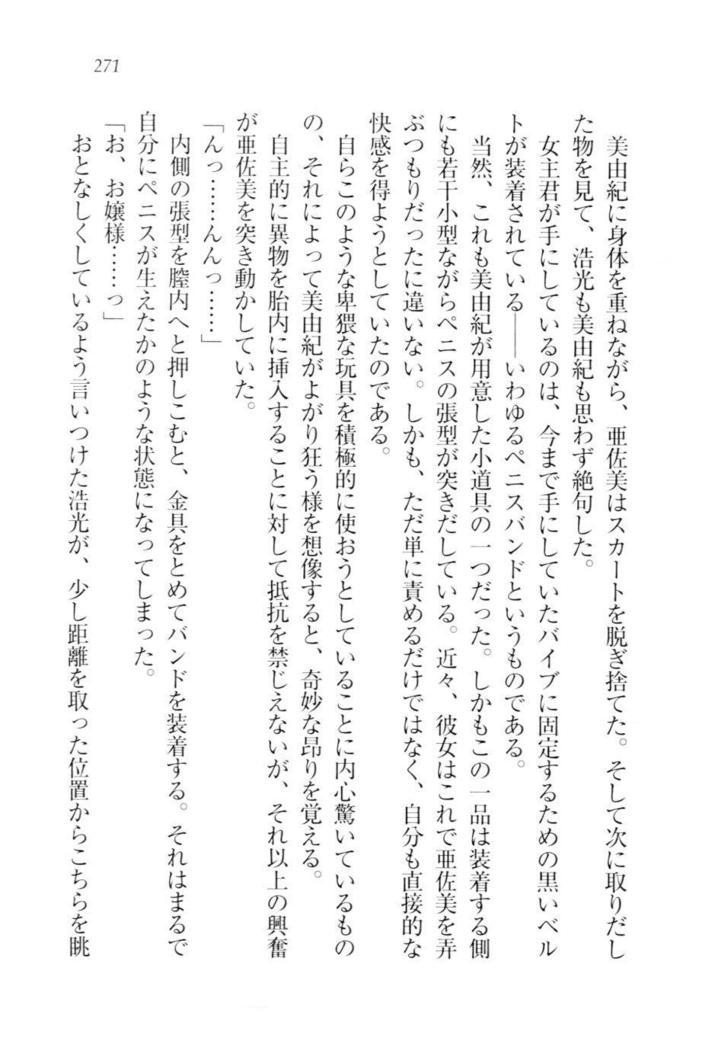 271
美由紀に身体を重ねながら、亜佐美はスカートを脱ぎ捨てた。そして次に取りだし
た物を見て、浩光も美由紀も思わず絶句した。
女主君が手にしているのは、今まで手にしていたバイブに固定するための黒いベル
トが装着されている――いわゆるペニスバンドというものである。
当然、これも美由紀が用意した小道具の一つだった。しかもこの一品は装着する側
にも若干小型ながらペニスの張型が突きだしている。近々、彼女はこれで亜佐美を弄
ぶつもりだったに違いない。しかも、ただ単に責めるだけではなく、自分も直接的な
快感を得ようとしていたのである。
自らこのような卑猥な玩具を積極的に使おうとしていることに内心驚いているもの
の、それによって美由紀がよがり狂う様を想像すると、奇妙な昂りを覚える。
自主的に異物を胎内に挿入することに対して抵抗を禁じえないが、それ以上の興奮
が亜佐美を突き動かしていた。
「んっ……んんっ……」
内側の張型を膣内へと押しこむと、金具をとめてバンドを装着する。それはまるで
自分にペニスが生えたかのような状態になってしまった。
「お、お嬢様……っ」
おとなしくしているよう言いつけた浩光が、少し距離を取った位置からこちらを眺